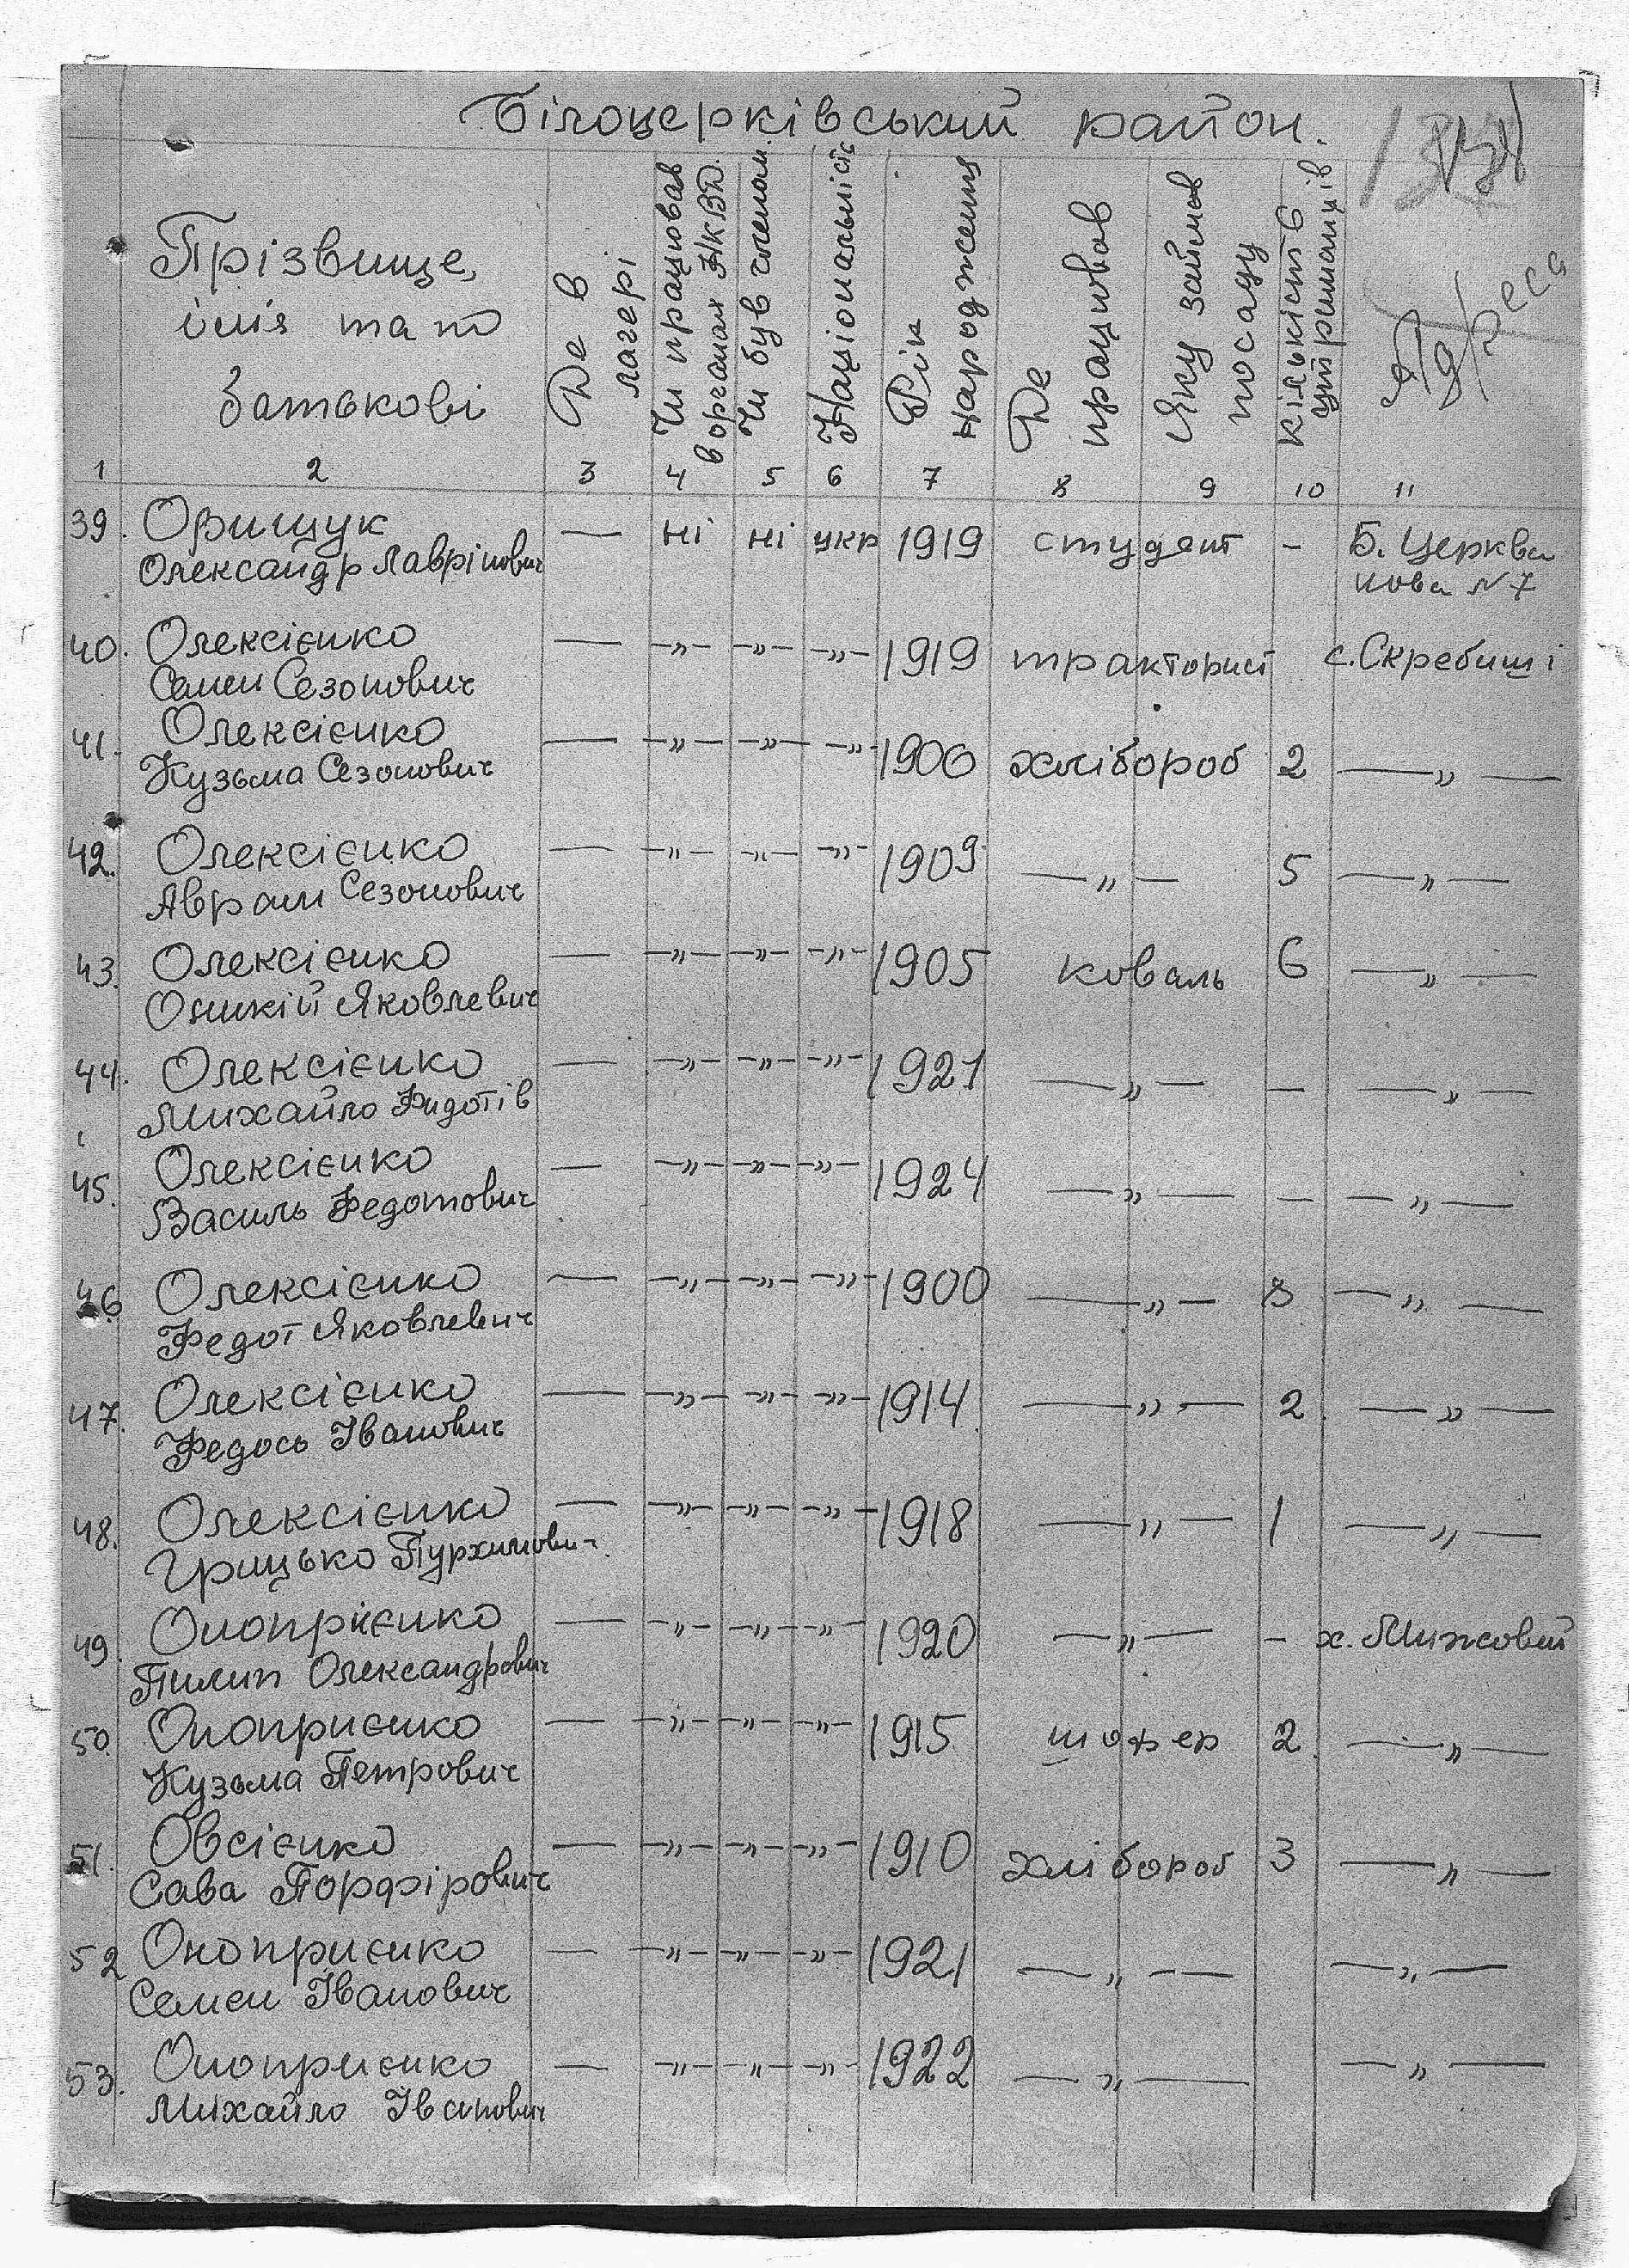 Білоцерківський район.
Прізвище, імія та по батькові
Де в лагері
Чи працював в органах НКВД.
Чи був членом.
Національність
Рік народження
Де працював
Яку займав посаду
Кількість утриманців
Адреса
1 2 3 4 5 6 7 8 9 10 11
39. Орищук — ні ні укр 1919 студент – Б. Церква
Олександр Лаврінович нова N 7
40. Олексієнко — –„– –„– –„– 1919 тракторист с. Скребиші
Семен Сезонович
41. Олексієнко — –„– –„– –„– 1906 хлібороб 2 —„—
Кузьма Сезонович
42. Олексієнко — –„– –„– –„– 1909 —„— 5 —„—
Аврам Сезонович
43. Олексієнко — –„– –„– –„– 1905 коваль 6 —„—
Оникій Яковлевич
44. Олексієнко — –„– –„– –„– 1921 —„— – —„—
Михайло Фидотів
45. Олексієнко — –„– –„– –„– 1924 —„— – —„—
Василь Федотович
46 Олексієнко — –„– –„– –„– 1900 —„— —„—
Федот Яковлевич
47. Олексієнко — –„– –„– –„– 1914 —„— 2 —„—
Федось Іванович
48. Олексієнко — –„– –„– –„– 1918 —„— 1 —„—
Грицько Пурхимович
49. Онопрієнко — –„– –„– –„– 1920 —„— – х. Мижовий
Пилип Олександрович
50. Оноприєнко — –„– –„– –„– 1915 шофер 2 —„—
Кузьма Петрович
51. Овсієнко — –„– –„– –„– 1910 хлібороб 3 —„—
Сава Порфірович
52 Оноприєнко — –„– –„– –„– 1921 —„— —„—
Семен Іванович
53. Оноприєнко — –„– –„– –„– 1922 —„— —„—
Михайло Іванович